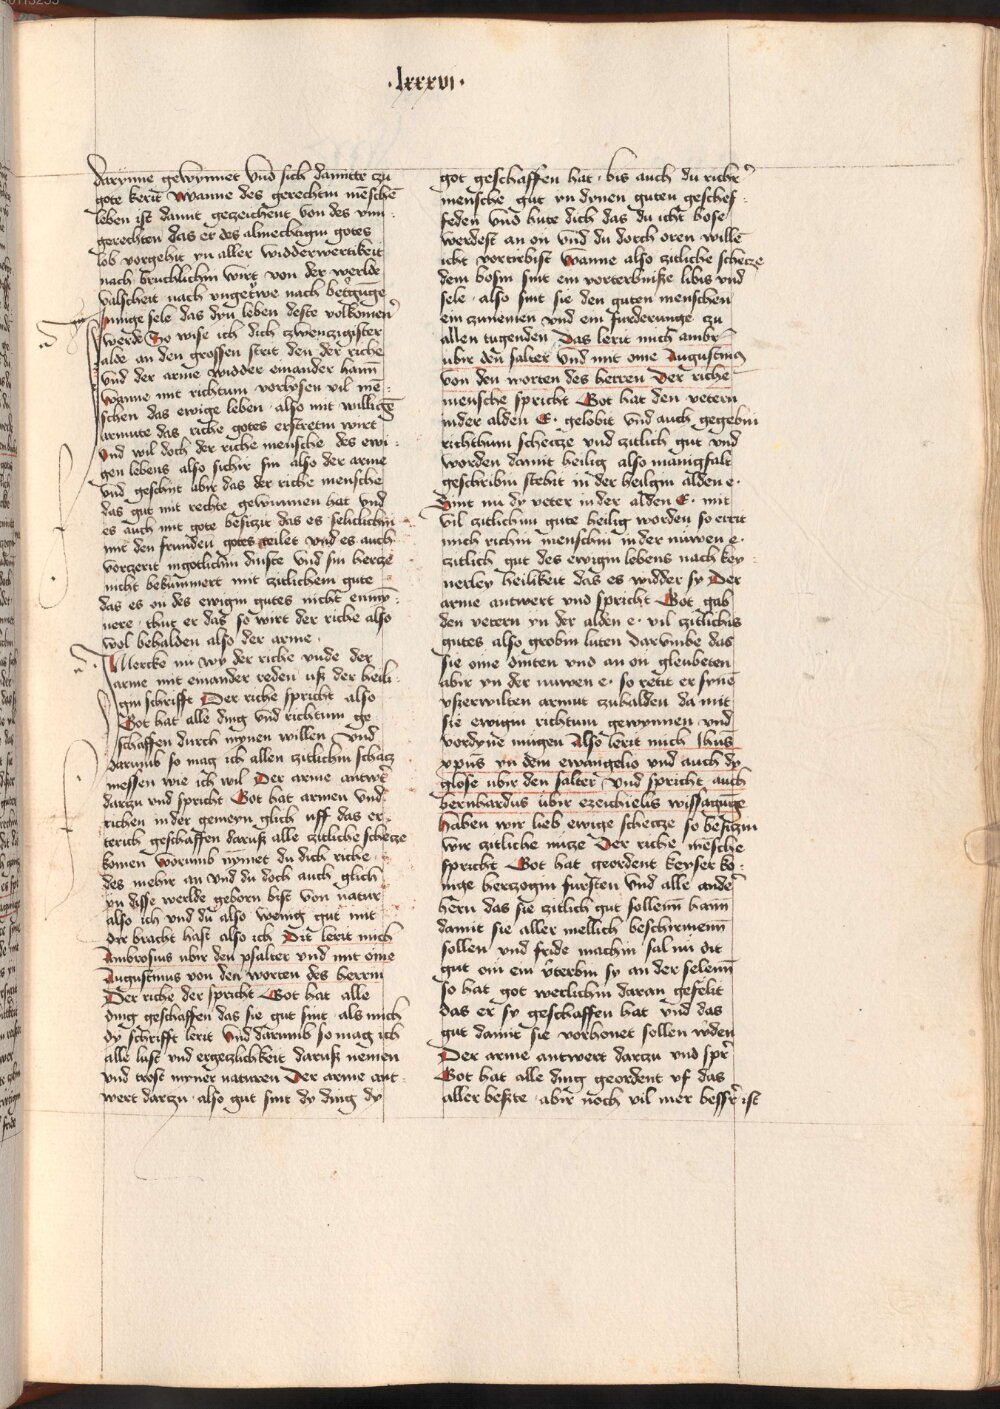 ·lxxxvi·
darynne gewynnet vnd sich damitte czu
gote kerit Wanne des gerechtin mēsche
leben ist damit geczeichent von des vnn·
gerechten das er des almechtigin gotes
lob vorgehit yn aller widderwertikeit
nach bruchlichin wirt von der werlde
valscheit nach vngetrwe nach
ynnige sele das dyn leben deste volkomen
werde So wise ich dich czwenczigister
alde an den grossen strit den der riche
vnd der arme widder einander hann
Wanne mit richtum vorlysen vil mē·
schen das ewige leben · also mit willigē
armute das riche gotes erstretin wirt
vnd wil doch der riche mensche des ewi·
gen lebens also sichir sin also der arme
vnd geschint abir das der riche mensche
das gut mit rechte gewunnen hat vnd
es auch mit gote besiczit das es selicklichin
mit den frunden gotes teilet vnd es auch
vorczerit ingotlichin dinste vnd sin hercze
nicht bekummert mit czitlichem gute
das es on des ewigin gutes nicht enmy·
nere · thut er das so wirt der riche also
wol behalden also der arme ·
Mercke nu wy der riche vnde der
arme mit einander reden usz der heili·
gin schrifft Der riche spricht also
Got hat alle ding vnd richtum ge
schaffen durch mynen willen vnd
darumb so mag ich allen czitlichin schacz
messen wie ich wil Der arme antwrt
darzu vnd spricht Got hat armen vnd
richen inder gemeyn glich uff das er·
terich geschaffen darusz alle czitliche schecze
komen Worumb nymet du dich riche
des mehir an vnd du doch auch glich
yn disse werlde geborn bist von natur
also ich vnd du also wenig gut mit
dir bracht hast also ich Dit lerit mich
Ambrosius ubir den psalter vnd mit ome
Augustinus von den worten des herrin
Der riche der spricht Got hat alle
ding geschaffen das sie gut sint · als mich
dy schrifft lerit Vnd darumb so mag ich
alle lust vnd ergeczlichkeit darusz nemen
vnd trost myner naturen Der arme ant·
wert darzu · also gut sint dy ding dy
got geschaffen hat · bis auch du richer
mensche gut yn dynen guten geschef·
feden vnd hute dich das du icht bose
werdest an on vnd du dorch oren wille
icht vorterbist Wanne also czitliche schecze
dem bosin sint ein vorterbnisze libis vnd
sele · also sint sie den guten menschen
ein czunemen vnd ein furderunge czu
allen tugenden Das lerit mich ambr̄
ubir den salter vnd mit ome Augustinus
von den worten des herren Der riche
mensche spricht Got hat den vetern
inder alden E· gelobit vnd auch gegebin
richthum schecze vnd czitlich gut vnd
worden damit heilig also manigfalt
geschribin stehit in der heilgin alden e·
Sint nu dy veter inder alden E· mit
vil czitlichim gute heilig worden so errit
mich richin menschin inder nuwen e·
czitlich gut des ewigin lebens nach key
nerley heilikeit das es widder sy Der
arme antwert vnd spricht Got gab
den vetern yn der alden e· vil czitlichis
gutes also grobin luten darumbe das
sie ome dinten vnd an on gleubeten
abir yn der nuwen e· so retit er synē
vszerwilten armut czuhalden da mit
sie ewigin richtum gewynnen vnd
vordyne mugen Also lerit mich Ihūs
xpūs yn dem ewangelio vnd auch dy
glose ubir den salter · vnd spricht auch
bernhardus ubir ezechielis wissagūge
haben wir lieb ewige schecze so besiczin
wir czitliche nucze Der riche mēsche
spricht Got hat geordent keyser ko·
nige herczogin fursten vnd alle ander
hern das sie czitlich gut sollenn hann
damit sie aller mellich beschirmenn
sollen vnd fride machin sal mi dit
gut om ein uterbin sy an der selenn
so hat got werlichin daran gefelit
das er sy geschaffen hat vnd das
gut damit sie vorhonet sollen wden
Der arme antwert darzu vnd spr̄
Got hat alle ding geordent uf das
aller beszte · abir noch vil mer besser ist